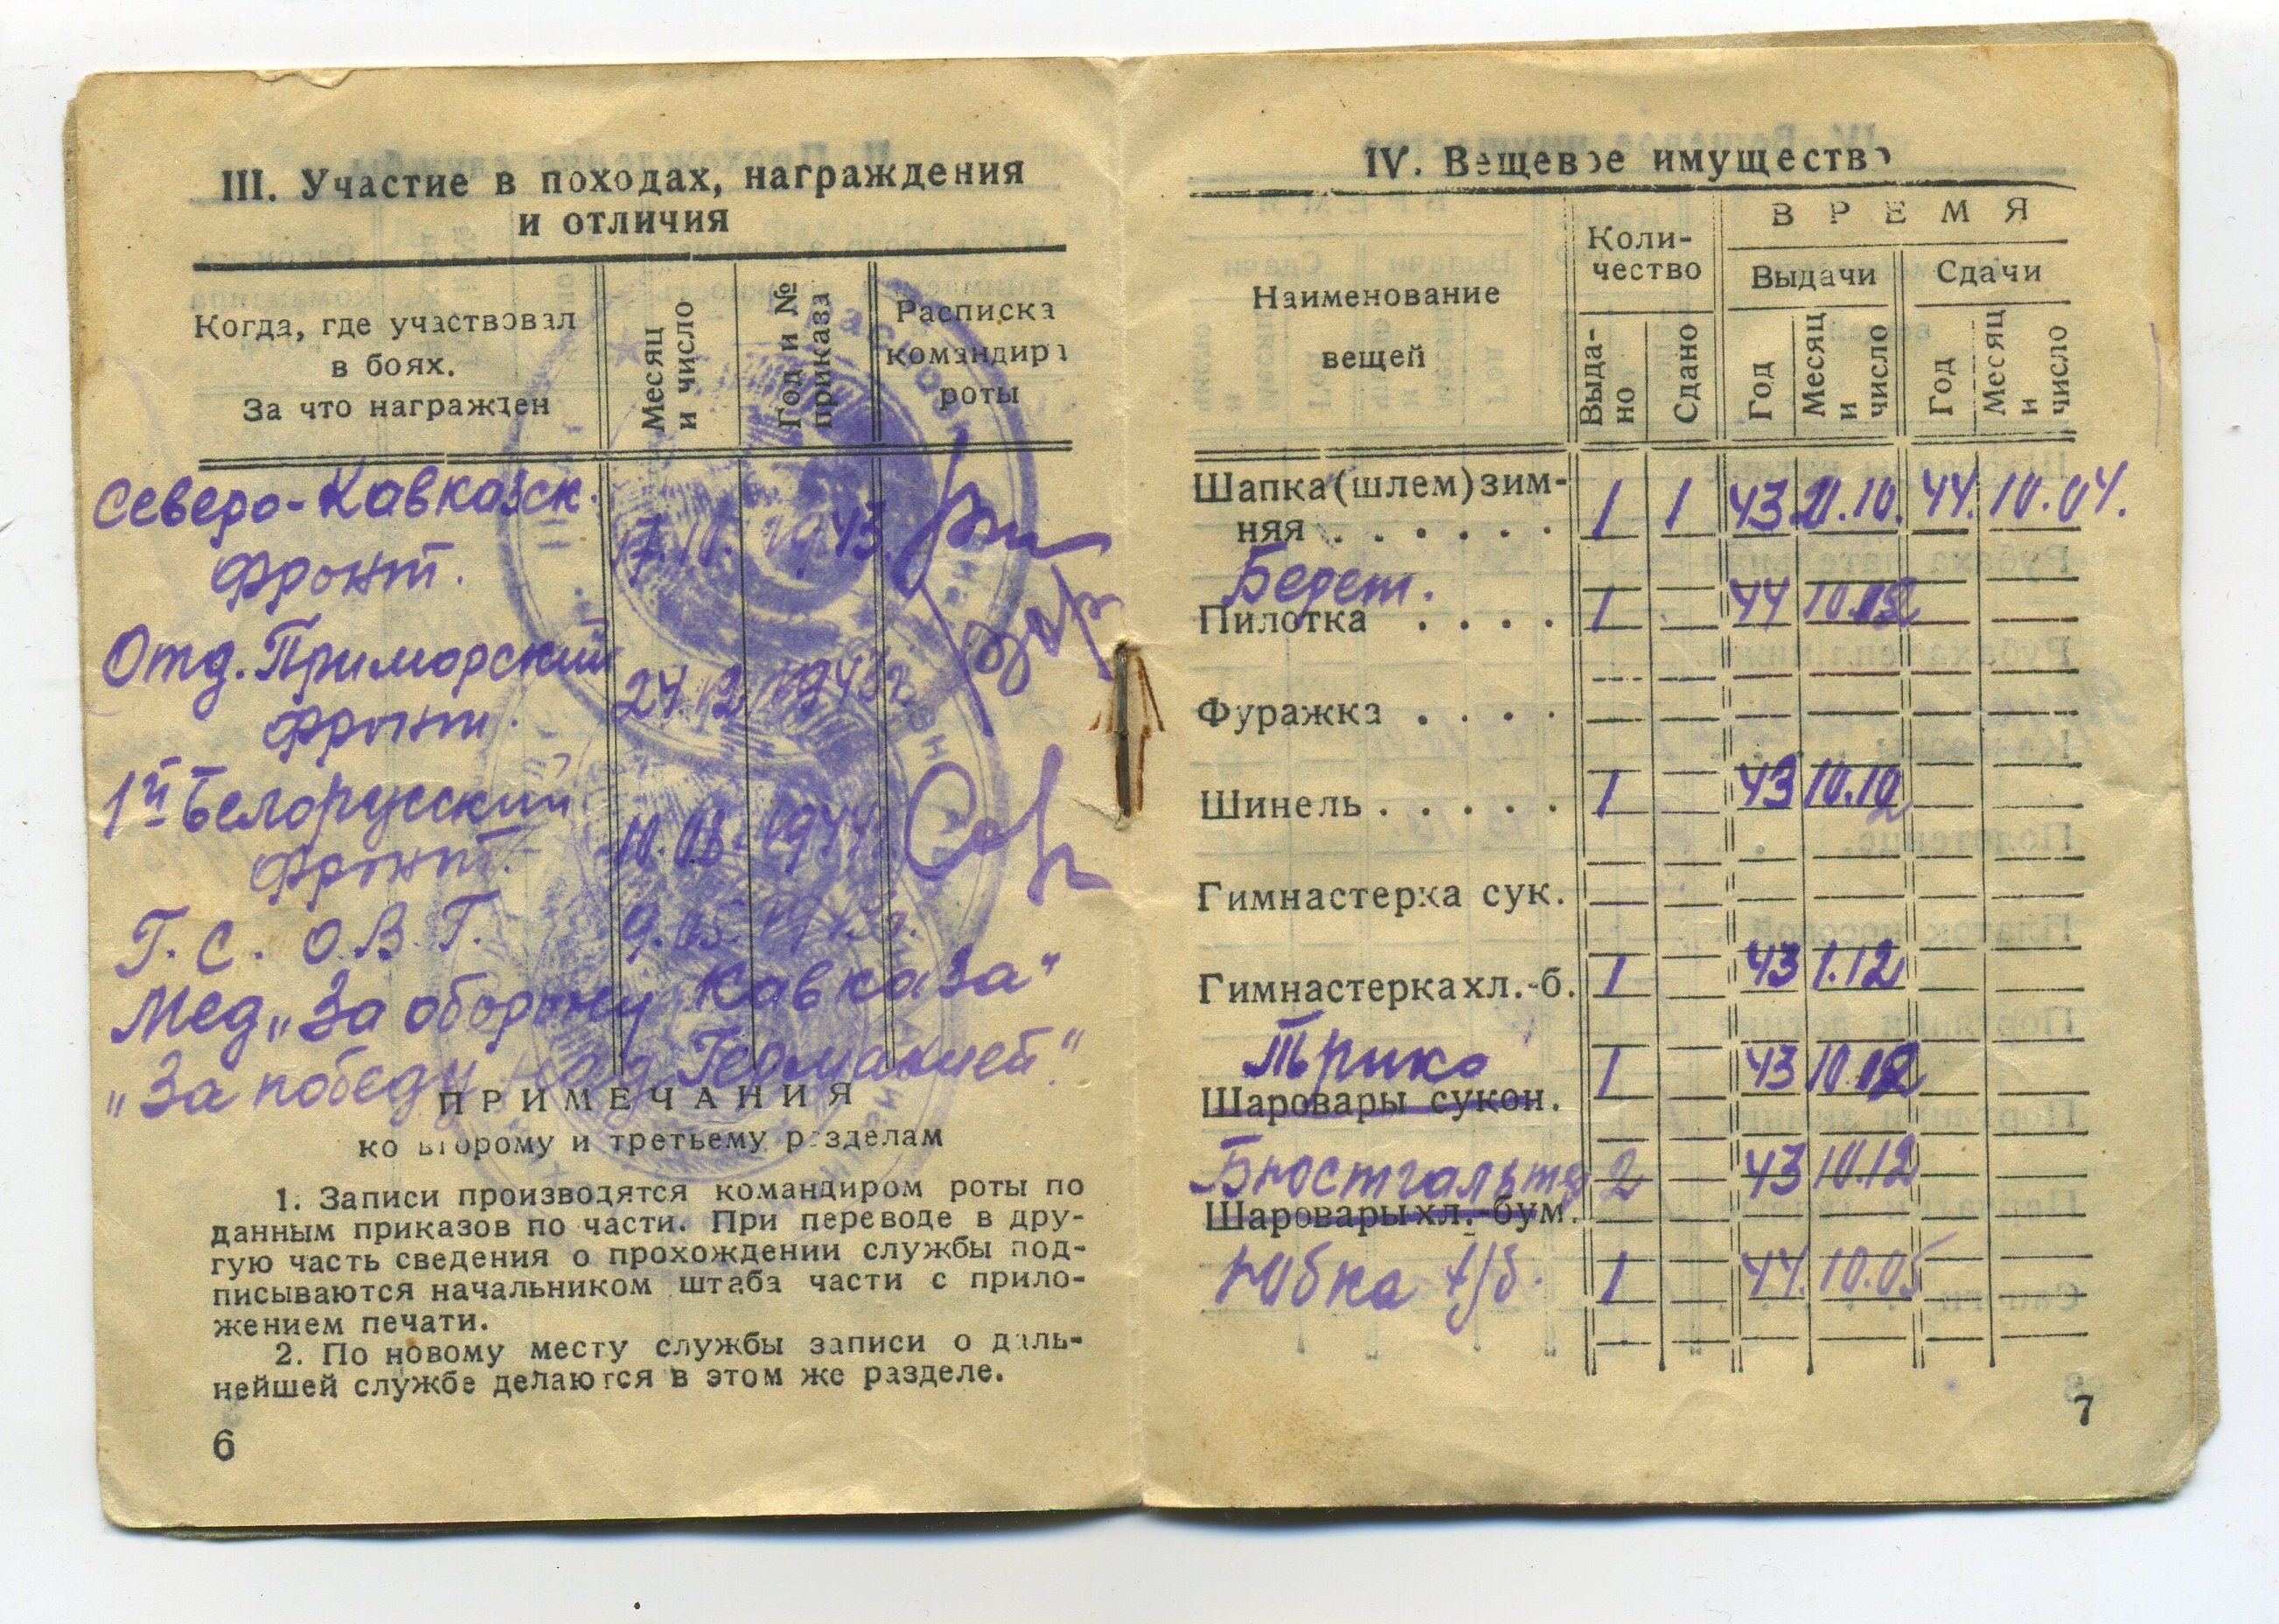 III. Участие в походах, награждения
и отличия
Когда, где участвовал
в боях.
За что награжден
Месяц
и число
Год и №
приказа
Расписка
командира
роты
Северо-Кавказск.
фронт.
17.10. 1943.
Отд. Приморский
фронт.
24.12. 1943
1й Белорусский
фронт.
10.08. 1944
Г. С. О.В.Г.
9.05.
Мед „За оборону Кавказа"
„За победу над Германией"
ПРИМЕЧАНИЯ
ко второму и третьему разделам
1. Записи производятся командиром роты по
данным приказов по части. При переводе в дру-
гую часть сведения о прохождении службы под-
писываются начальником штаба части с прило-
жением печати.
2. По новому месту службы записи о даль-
нейшей службе делаются в этом же разделе.
6
IV. Вещевое имущество
Наименование
вещей
Коли-
чество
Выда-
но
Сдано
ВРЕМЯ
Выдачи
Сдачи
Год
Месяц
и
число
Год
Месяц
и
число
Шапка (шлем) зим-
няя . . . . . . 1 1 43 .10. 44. 10.04.
Берет.
Пилотка . . . . 1 44 10.05
Фуражка . . . .
Шинель . . . . . 1 43 10.10
Гимнастерка сук.
Гимнастерка хл.-б. 1 43 1.12
Трико
Шаровары сукон. 1 43 10.12
Бюстгальтер 2 43 10.12
Шаровары хл.-бум.
Юбка х/б. 1 44. 10.05
7